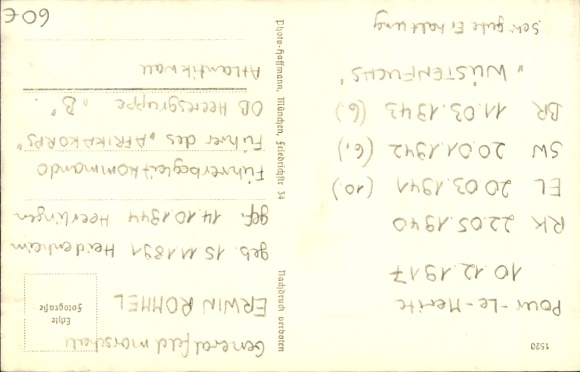 1520
Pour-Le-Merite
10.12.1917
RK 22.05.1940
EL 20.03.1941 (10)
SW 20.01.1942 (6.)
BR 11.03.1943 (6.)
"WÜSTENFUCHS"
sehr gute Erhaltung
Nachdruck verboten
Photo-Hoffmann, München, Friedrichstr. 34
Echte
Fotografie
Generalfeldmarschall
ERWIN ROMMEL
geb. 15.11.1891 Heidenheim
gef. 14.10.1944 Herrlingen
Führerbegleitkommando
Führer des "AFRIKAKORPS"
OB Heeresgruppe "B".
Atlantikwall
60€